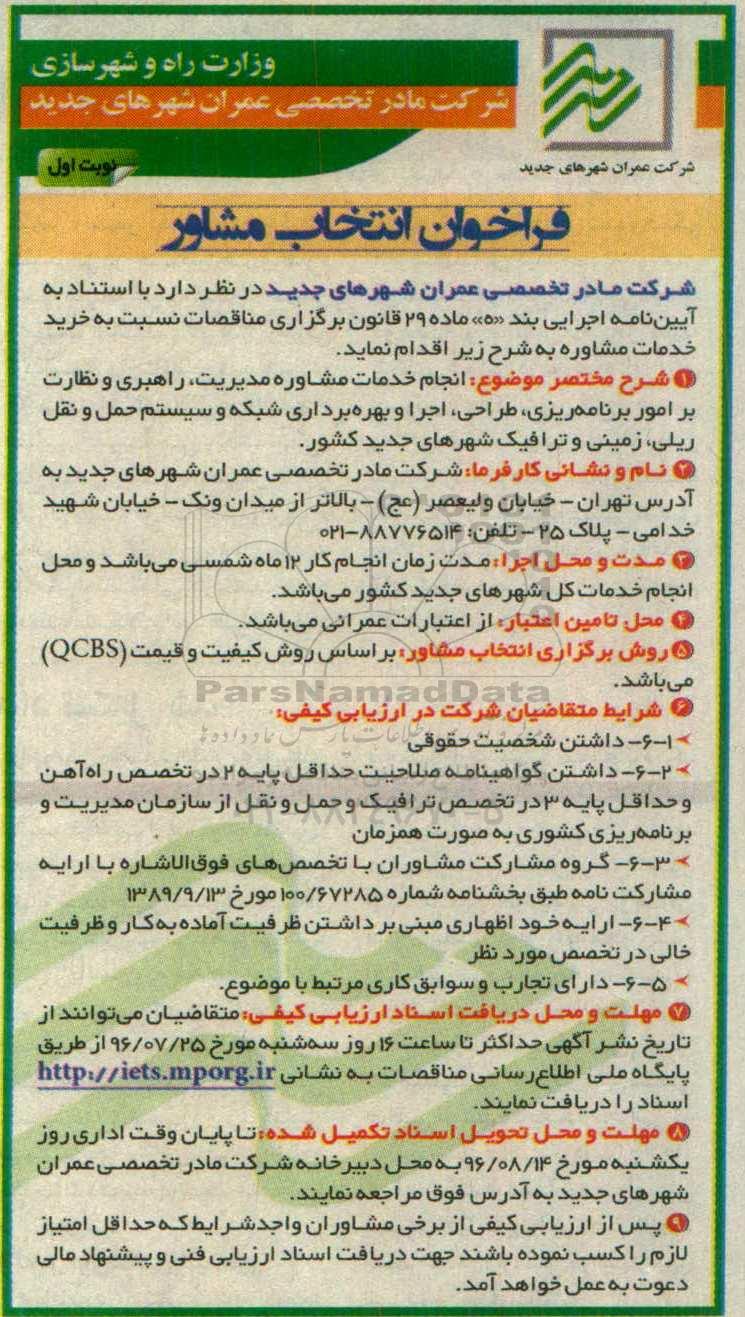 وزارت راه و شهرسازی
شرکت مادر تخصصی عمران شهرهای جدید
شرکت عمران شهرهای جدید
نوبت اول
فراخوان انتخاب مشاور
شرکت مادر تخصصی عمران شهرهای جدید در نظر دارد با استناد به
آیین‌نامه اجرایی بند «ه» ماده ۲۹ قانون برگزاری مناقصات نسبت به خرید
خدمات مشاوره به شرح زیر اقدام نماید.
۱ شرح مختصر موضوع: انجام خدمات مشاوره مدیریت، راهبری و نظارت
بر امور برنامه‌ریزی، طراحی، اجرا و بهره‌برداری شبکه و سیستم حمل و نقل
ریلی، زمینی و ترافیک شهرهای جدید کشور.
۲ نام و نشانی کارفرما: شرکت مادر تخصصی عمران شهرهای جدید به
آدرس تهران – خیابان ولیعصر (عج) – بالاتر از میدان ونک – خیابان شهید
خدامی – پلاک ۲۵ – تلفن: ۸۸۷۷۶۵۱۴–۰۲۱
۳ مدت و محل اجرا: مدت زمان انجام کار ۱۲ ماه شمسی می‌باشد و محل
انجام خدمات کل شهرهای جدید کشور می‌باشد.
۴ محل تامین اعتبار: از اعتبارات عمرانی می‌باشد.
۵ روش برگزاری انتخاب مشاور: بر اساس روش کیفیت و قیمت (QCBS)
می‌باشد.
ParsNamadData
۶ شرایط متقاضیان شرکت در ارزیابی کیفی:
۶-۱- داشتن شخصیت حقوقی
۶-۲- داشتن گواهینامه صلاحیت حداقل پایه ۲ در تخصص راه‌آهن
و حداقل پایه ۳ در تخصص ترافیک و حمل و نقل از سازمان مدیریت و
برنامه‌ریزی کشوری به صورت همزمان
۶-۳- گروه مشارکت مشاوران با تخصص‌های فوق‌الاشاره با ارایه
مشارکت نامه طبق بخشنامه شماره ۱۰۰/۶۷۲۸۵ مورخ ۱۳۸۹/۹/۱۳
۶-۴- ارایه خود اظهاری مبنی بر داشتن ظرفیت آماده به کار و ظرفیت
خالی در تخصص مورد نظر
۶-۵- دارای تجارب و سوابق کاری مرتبط با موضوع.
۷ مهلت و محل دریافت اسناد ارزیابی کیفی: متقاضیان می‌توانند از
تاریخ نشر آگهی حداکثر تا ساعت ۱۶ روز سه‌شنبه مورخ ۹۶/۰۷/۲۵ از طریق
پایگاه ملی اطلاع‌رسانی مناقصات به نشانی http://iets.mporg.ir
اسناد را دریافت نمایند.
۸ مهلت و محل تحویل اسناد تکمیل شده: تا پایان وقت اداری روز
یکشنبه مورخ ۹۶/۰۸/۱۴ به محل دبیرخانه شرکت مادر تخصصی عمران
شهرهای جدید به آدرس فوق مراجعه نمایند.
۹ پس از ارزیابی کیفی از برخی مشاوران واجد شرایط که حداقل امتیاز
لازم را کسب نموده باشند جهت دریافت اسناد ارزیابی فنی و پیشنهاد مالی
دعوت به عمل خواهد آمد.